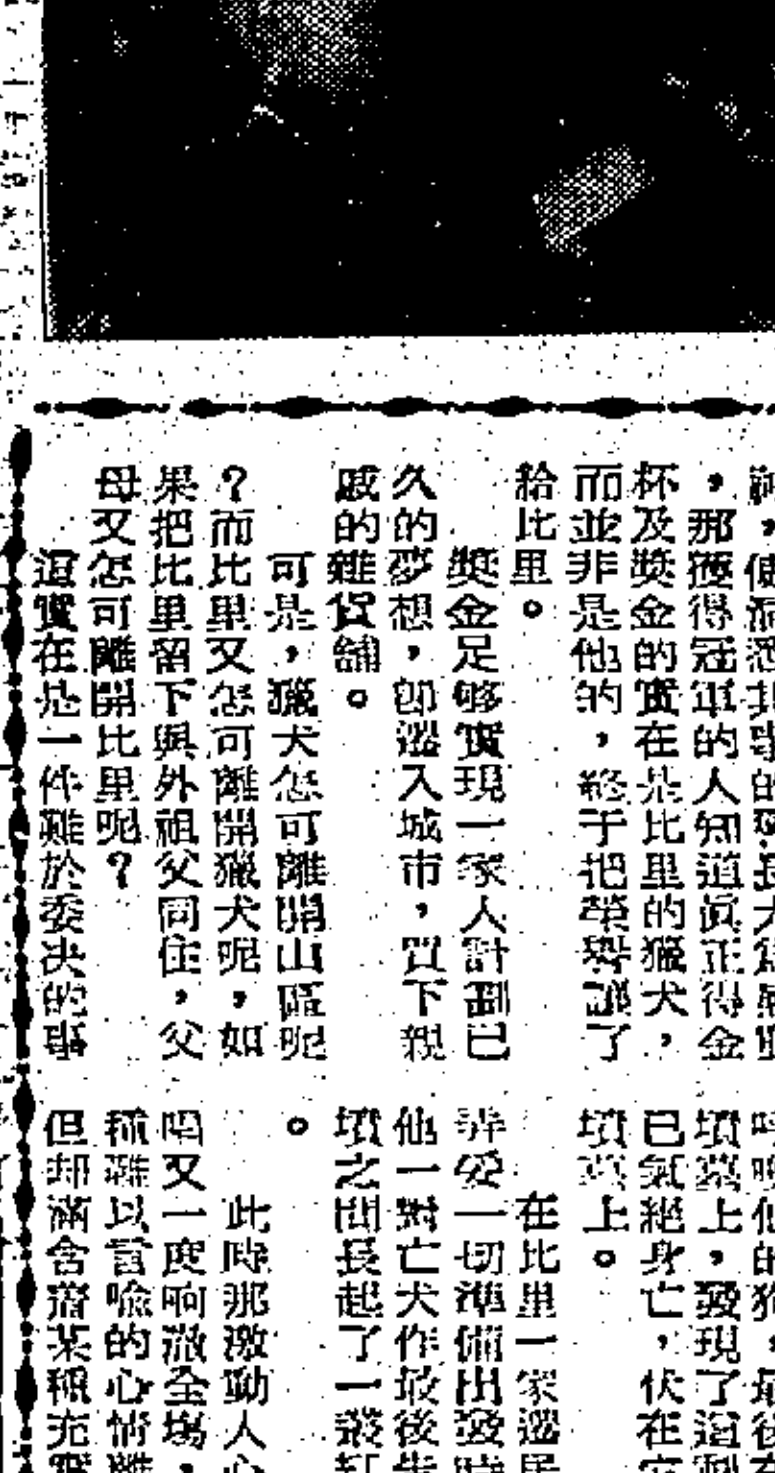 ，那獲得冠軍的人知道眞正得金
杯及奬金的實在是比里的獵犬，
而並非是他的，終于把榮譽讓了
給比里。
奬金足够實現一家人計劃已
久的夢想，卽遷入城市，買下親
戚的雜貨舖。
可是，獵犬怎可離開山區呢
？而比里又怎可離開獵犬呢，如
果把比里留下與外祖父同住，父
母又怎可離開比里呢？
這實在是一件難於委决的事
墳墓上，發現了這
已氣絕身亡，伏在
墳墓上。
在比里一家遷居
弄妥一切準備出發時
他一對亡犬作最後
墳之間長起了一叢紅
。
此時那激動人心
唱又一度响澈全場，
種難以言喩的心情離
但却滿含着某種充